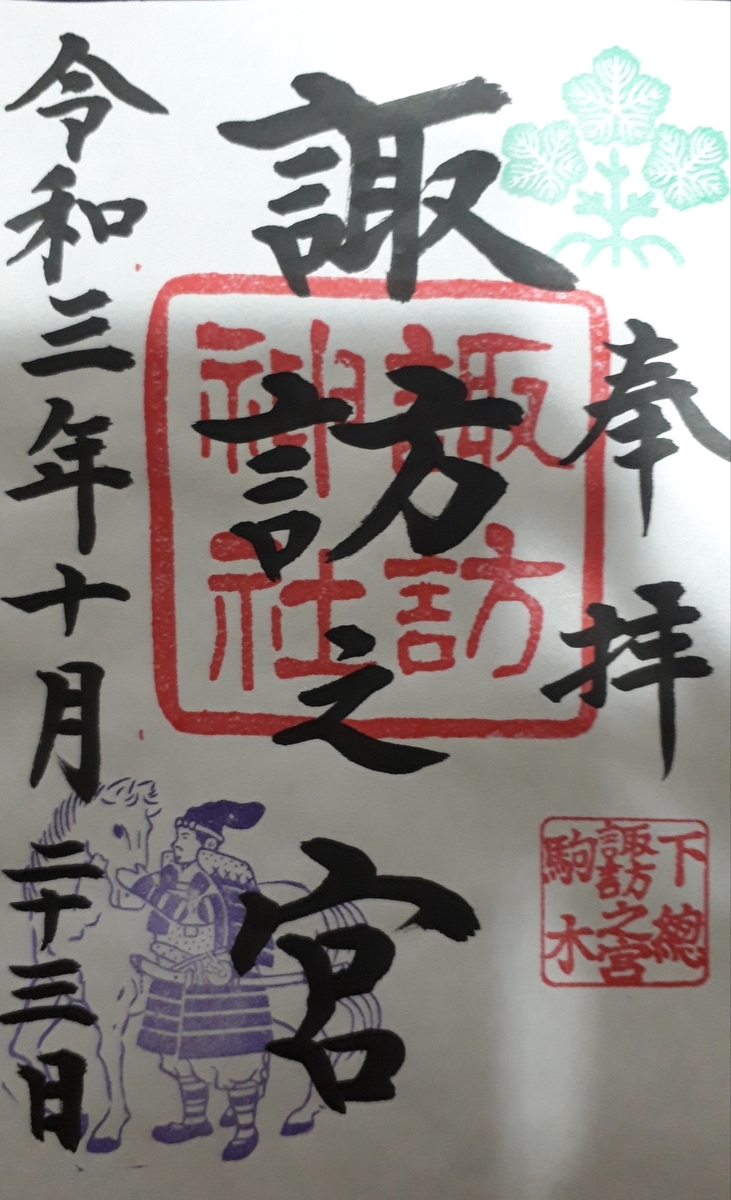 奉拝
諏訪之宮
諏訪
神社
下總
諏訪之宮
駒木
令和三年十月二十三日